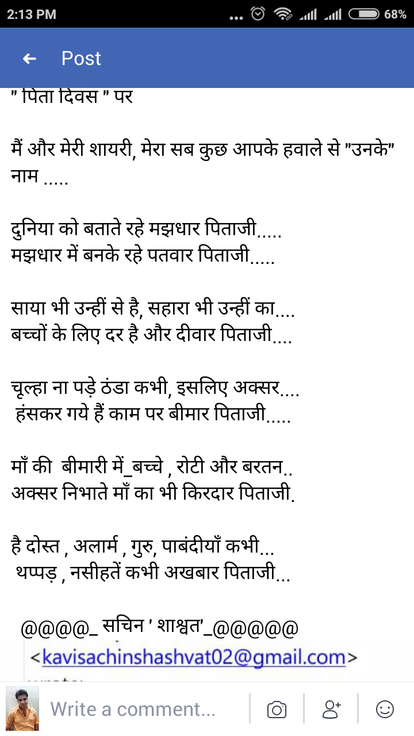 2:13 PM
... 68%
Post
" पिता दिवस " पर
मैं और मेरी शायरी, मेरा सब कुछ आपके हवाले से "उनके"
नाम .....
दुनिया को बताते रहे मझधार पिताजी.....
मझधार में बनके रहे पतवार पिताजी.....
साया भी उन्हीं से है, सहारा भी उन्हीं का....
बच्चों के लिए दर है और दीवार पिताजी....
चूल्हा ना पड़े ठंडा कभी, इसलिए अक्सर....
हंसकर गये हैं काम पर बीमार पिताजी.....
माँ की बीमारी में_बच्चे , रोटी और बरतन..
अक्सर निभाते माँ का भी किरदार पिताजी.
है दोस्त , अलार्म , गुरु, पाबंदीयाँ कभी...
थप्पड़ , नसीहतें कभी अखबार पिताजी...
@@@@_ सचिन ' शाश्वत'_@@@@@
<kavisachinshashvat02@gmail.com>
Write a comment...